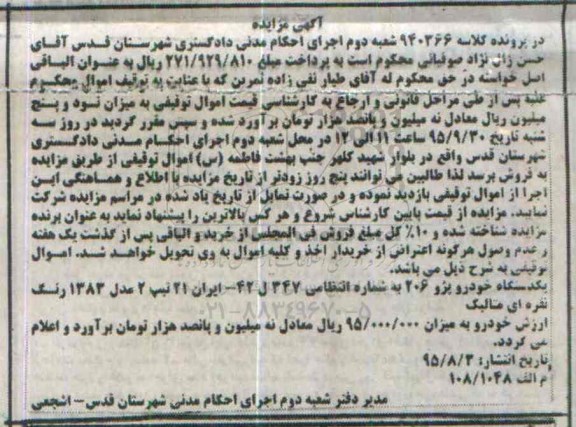 آگهی مزایده
در پرونده کلاسه ۹۴۰۳۶۶ شعبه دوم اجرای احکام مدنی دادگستری شهرستان قدس آقای
حسن زال نژاد صوفیانی محکوم است به پرداخت مبلغ ۲۷۱/۹۲۹/۸۱۰ ریال به عنوان الباقی
اصل خواسته در حق محکوم له آقای طیار نقی زاده ثمرین که با عنایت به توقیف اموال محکوم
علیه پس از طی مراحل قانونی و ارجاع به کارشناسی قیمت اموال توقیفی به میزان نود و پنج
میلیون ریال معادل نه میلیون و پانصد هزار تومان برآورد شده و سپس مقرر گردید در روز سه
شنبه تاریخ ۹۵/۹/۳۰ ساعت ۱۱ الی ۱۲ در محل شعبه دوم اجرای احکام مدنی دادگستری
شهرستان قدس واقع در بلوار شهید کلهر جنب بهشت فاطمه (س) اموال توقیفی از طریق مزایده
به فروش برسد لذا طالبین می توانند پنج روز زودتر از تاریخ مزایده با اطلاع و هماهنگی این
اجرا از اموال توقیفی بازدید نموده و در صورت تمایل از تاریخ یاد شده در مراسم مزایده شرکت
نمایند. مزایده از قیمت پایین کارشناس شروع و هر کس بالاترین را پیشنهاد نماید به عنوان برنده
مزایده شناخته شده و ۱۰٪ کل مبلغ فروش فی المجلس از خرید و الباقی پس از گذشت یک هفته
و عدم وصول هرگونه اعتراض از خریدار اخذ و کلیه اموال به وی تحویل خواهد شد. اموال
توقیفی به شرح ذیل می باشد.
یکدستگاه خودرو پژو ۲۰۶ به شماره انتظامی ۳۴۷ ل ۴۲- ایران ۲۱ تیپ ۲ مدل ۱۳۸۳ رنگ
نقره ای متالیک
ارزش خودرو به میزان ۹۵/۰۰۰/۰۰۰ ریال معادل نه میلیون و پانصد هزار تومان برآورد و اعلام
می گردد.
تاریخ انتشار: ۹۵/۸/۳
م الف ۱۰۸/۱۰۴۸
مدیر دفتر شعبه دوم اجرای احکام مدنی شهرستان قدس- اشجعی
۰۲۱-۸۸۳۴۹۶۷۰-۵